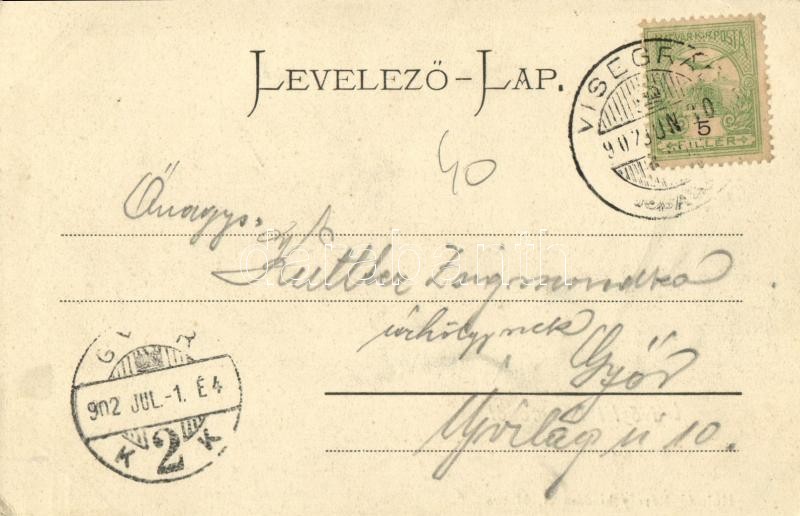 LEVELEZŐ-LAP.
MAGYAR KIR. POSTA
5
FILLÉR
VISEGRÁ
902 JUN 30
40
Őnagys.
Kuttler Zsigmondka
úrhölgynek
Győr
Ujvilág u 10.
902 JUL.-1. É4
K 2 K
darabanth